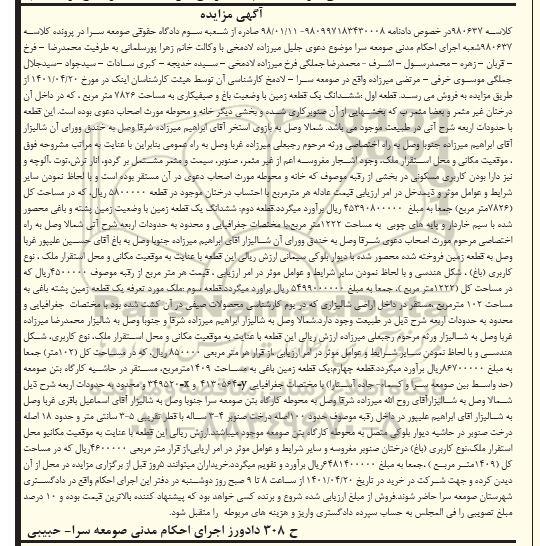 آگهی مزایده
کلاســه ۹۸۰۶۳۷در خصوص دادنامه ۹۸۰۹۹۷۱۸۳۴۳۰۰۰۸- ۹۸/۰۱/۱۱ صادره از شـعبه سـوم دادگاه حقوقی صومعه سـرا در پرونده کلاسـه
۹۸۰۶۳۷شعبه اجرای احکام مدنی صومعه سرا موضوع دعوی جلیل میرزاده لادمخی با وکالت خانم زهرا پورسلمانی به طرفیت محمدرضا - فرخ
- قربان - زهره - محمدرسـول - اشـرف - محمدرضا جملگی فرخ میرزاده لادمخی - سـیده خدیجه - کبری سـادات - سیدجواد -سیدجلال
جملگی موسـوی خرفی - مرتضی میرزاده واقع در صومعه سـرا - لادمخ کارشناسی آن توسط هیئت کارشناسان اینک در مورخ ۱۴۰۱/۰۴/۲۰ از
طریق مزایده به فروش می رسـد. قطعه اول :ششدانگ یک قطعه زمین با وضعیت باغ و صیفیکاری به مساحت ۷۸۲۶ متر مربع ، که در داخل آن
درختان غیر مثمر و بعضا مثمر بی که بخشهایی از آن صنوبرکاری شـده و بخشی دیگر خانه و محوطه مورث اصحاب دعوی بوده است. این قطعه
با حدودات اربعه شـرح آتی در طبیعت موجود می باشد. شمالا وصل به بازوی استخر آقای ابراهیم میرزاده شرقا وصل به خندق وورای آن شالیزار
آقای ابراهیم میرزاده جنوبا وصل به راه اختصاصی ورثه مرحوم رجبعلی میرزاده غربا وصل به راه عمومی بنابراین با عنایت به مراتب مشروحه فوق
، موقعیت مکانی و محل اسـتقرار ملک، وجود اشـجار مغروسـه اعم از غیر مثمر، صنوبر، سیمت و مثمر مشـتمل بر گردو، انار ترش،توت ،آلوچه و
نیز دارا بودن کاربری مسـکونی در بخشی از رقبه موصوف که خانه و محوطه مورث اصحاب دعوی در آن مستقر بوده است و با لحاظ نمودن سایر
شرایط و عوامل موثر و ذیمدخل در امر ارزیابی قیمت عادله هر مترمربع با احتساب درختان موجود در قطعه ۵۸۰۰۰۰۰ ریال، که در مساحت کل
(۷۸۲۶متر مربع) جمعا به مبلغ ۴۵۳۹۰۸۰۰۰۰۰ ریال برآورد میگردد.قطعه دوم: ششدانگ یک قطعه زمین با وضعیت زمین پشته و باغی محصور
شده با سیم خاردار و پایه های چوبی به مساحت ۱۲۲۲متر مربع.با مختصات جغرافیایی و محدود به حدودات اربعه شرح آتی شمالا وصل به راه
اختصاصی مرحوم مورث اصحاب دعوی شـرقا وصل به خندق وورای آن شـالیزار آقای ابراهیم میرزاده جنوبا وصل به باغ آقای حسـین علیپور غربا
وصل به قطعه زمین فروخته شده محصور شده با دیوار بلوکی سیمانی ارزش ریالی این قطعه با عنایت به موقعیت مکانی و محل استقرار ملک ، نوع
کاربری (باغ) ، شکل هندسی و با لحاظ نمودن سایر شرایط و عوامل موثر در امر ارزیابی ، قیمت هر متر مربع از رقبه موصوف ۴۵۰۰۰۰۰ریال که
در مساحت کل (۱۲۲۲متر مربع )، جمعا به مبلغ ۵۴۹۹۰۰۰۰۰۰ ریال برآورد میگردد.قطعه سوم :ملک مورد تعرفه یک قطعه زمین پشته باغی به
مساحت ۱۰۲ مترمربع ،مستقر در داخل اراضی شالیزاری که در یوم کارشناسی محصولات صیفی در آن کشت شده بود با مختصات جغرافیایی و
محدود به حدودات اربعه شرح ذیل در طبیعت وجود دارد.شمالا وصل به شالیزار ابراهیم میرزاده شرقا و جنوبا وصل به شالیزار محمدرضا میرزاده
غربا وصل به شـالیزار ورثه مرحوم رجبعلی میرزاده ارزش ریالی این قطعه با عنایت به موقعیت مکانی و محل اسـتقرار ملک، نوع کاربری، شـکل
هندسـی و با لحاظ نمودن سـایر شـرایط و عوامل موثر در امر ارزیابی ،از قرار هر متر مربعی ۸۵۰۰۰۰ ریال، که در مسـاحت کل (۱۰۲متر) جمعا
به مبلغ ۸۶۷۰۰۰۰۰ریال برآورد میگردد.قطعه چهارم:یک قطعه زمین باغی به مسـاحت ۱۴۰۹مترمربع، مسـتقر در حاشـیه کارگاه بتن صومعه
(حد واسـط بین صومعه سـرا و کسـما- جاده آبسـتارا) با مختصات جغرافیایی ۴۱۳۰۵۶۴-y و ۳۴۹۵۲۰-x و محدود به حدودات اربعه شـرح ذیل
شـمالا وصل به شـالیزارآقای روح الله میرزاده شـرقا وصل به محوطه کارگاه بتن صومعه سرا جنوبا وصل به شالیزار آقای اسماعیل باقری غربا وصل
به شـالیزار آقای ابراهیم علیپور در داخل رقبه موصوف حدود ۱۰۰اصله درخت صنوبر ۴-۳ سـاله با قطاتقریبی ۵-۳ سـانتی متر و حدود ۱۸ اصله
درخت صنوبر در حاشیه دیوار بلوکی متصل به محوطه کارگاه بتن صومعه موجود میباشند.ارزش ریالی این قطعه با عنایت به موقعیت مکانیو محل
استقرار ملک،نوع کاربری (باغ) درختان صنوبر مغروسه و سایر شرایط و عوامل موثر در امر اریابی،از قرار متر مربعی ۴۶۰۰۰۰۰ریال که در مساحت
کل (۱۴۰۹متـر مربـع ) ،جمعا به مبلغ ۶۴۸۱۴۰۰۰۰۰ریال برآورد و تقویم میگردد.خریداران میتوانند ۵روز قبل از برگزاری مزایده در محل از آن
دیدن کرده و جهت شـرکت در خرید در تاریخ ۱۴۰۱/۰۴/۲۰ از سـاعت ۸ تا ۹ صبح روز دوشـنبه در دفتر این اجرای احکام واقع در دادگستری
شهرستان صومعه سرا حاضر شوند.فروش از مبلغ ارزیابی شده شروع و برنده کسی خواهد بود که پیشنهاد کننده بالاترین قیمت بوده و ۱۰ درصد
مبلغ تصویبی را فی المجلس به حساب سپرده دادگستری واریز و هزینه های مربوطه را متقبل شود.
ح ۳۰۸ دادورز اجرای احکام مدنی صومعه سرا- حبیبی